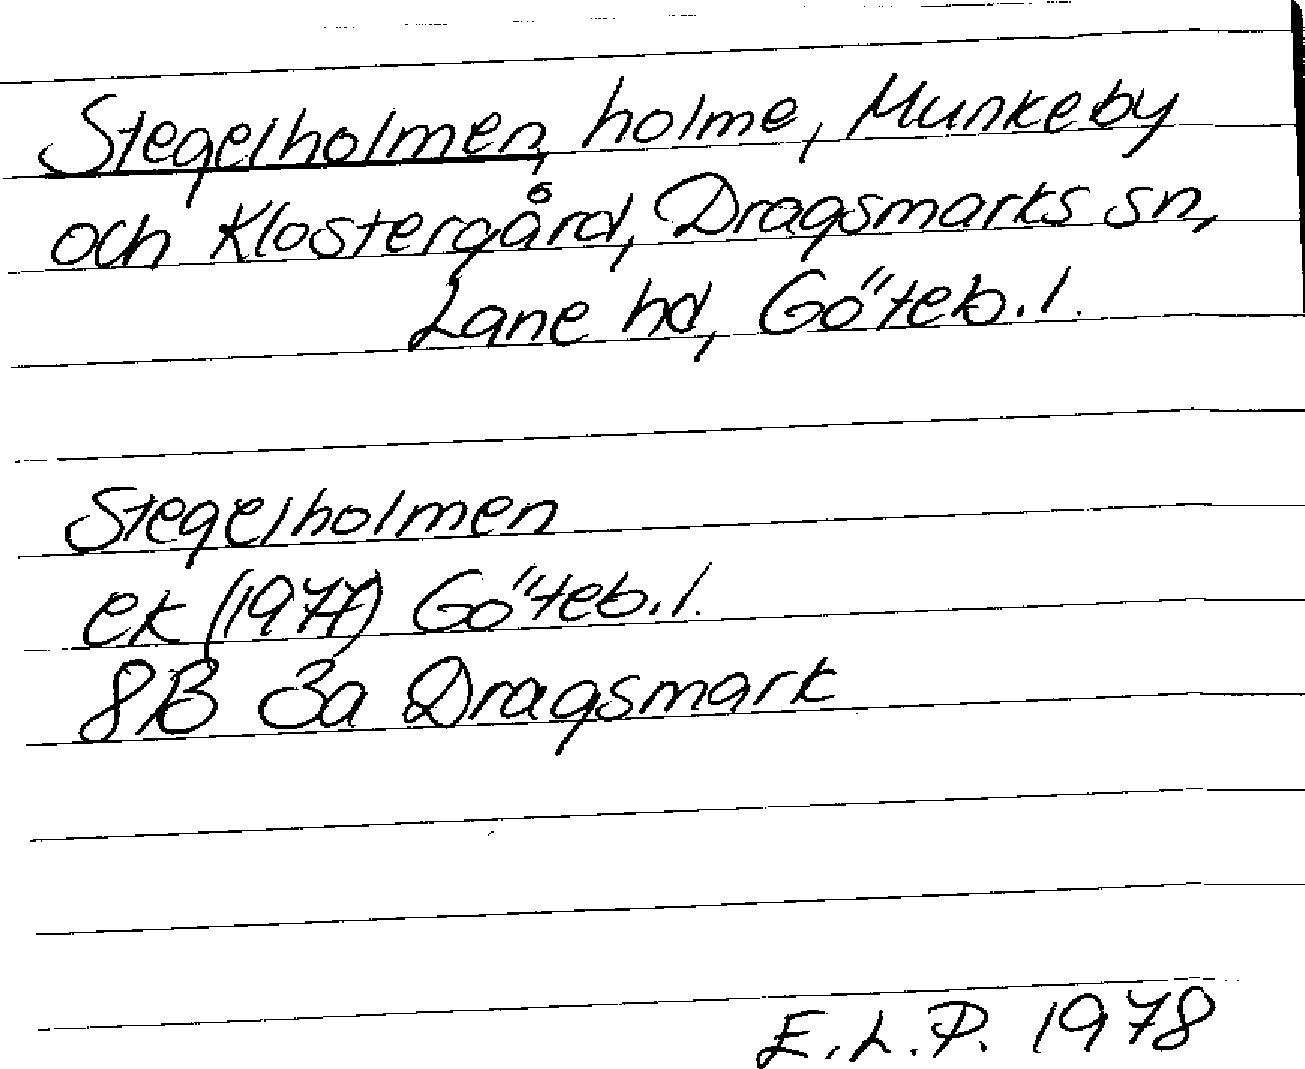 Stegelholmen, holme, Munkeby
och Klostergård, Dragsmarks sn,
Lane hd, Göteb.l.
Stegelholmen
ek (1977) Göteb.l.
8B 3a Dragsmark
E.L.P. 1978